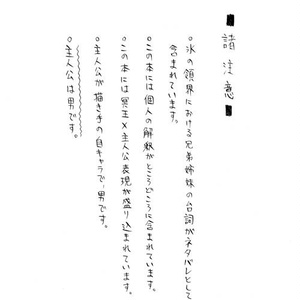 請注意
○氷の領界における兄弟姉妹の台詞がネタバレとして
含まれています。
○この本には個人の解釈がところどころに含まれています。
○この本には冥王×主人公表現が盛り込まれています。
○主人公が描き手の自キャラで、男です。
○主人公は男です。